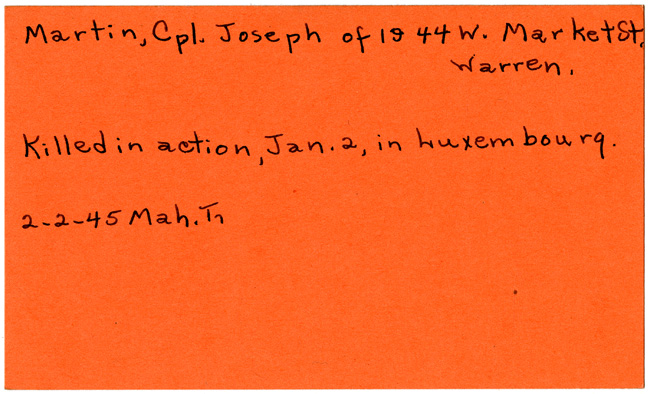 Martin, Cpl. Joseph of 1944 W. Market St.
Warren.
Killed in action, Jan. 2, in Luxembourg.
2-2-45 Mah. Tr